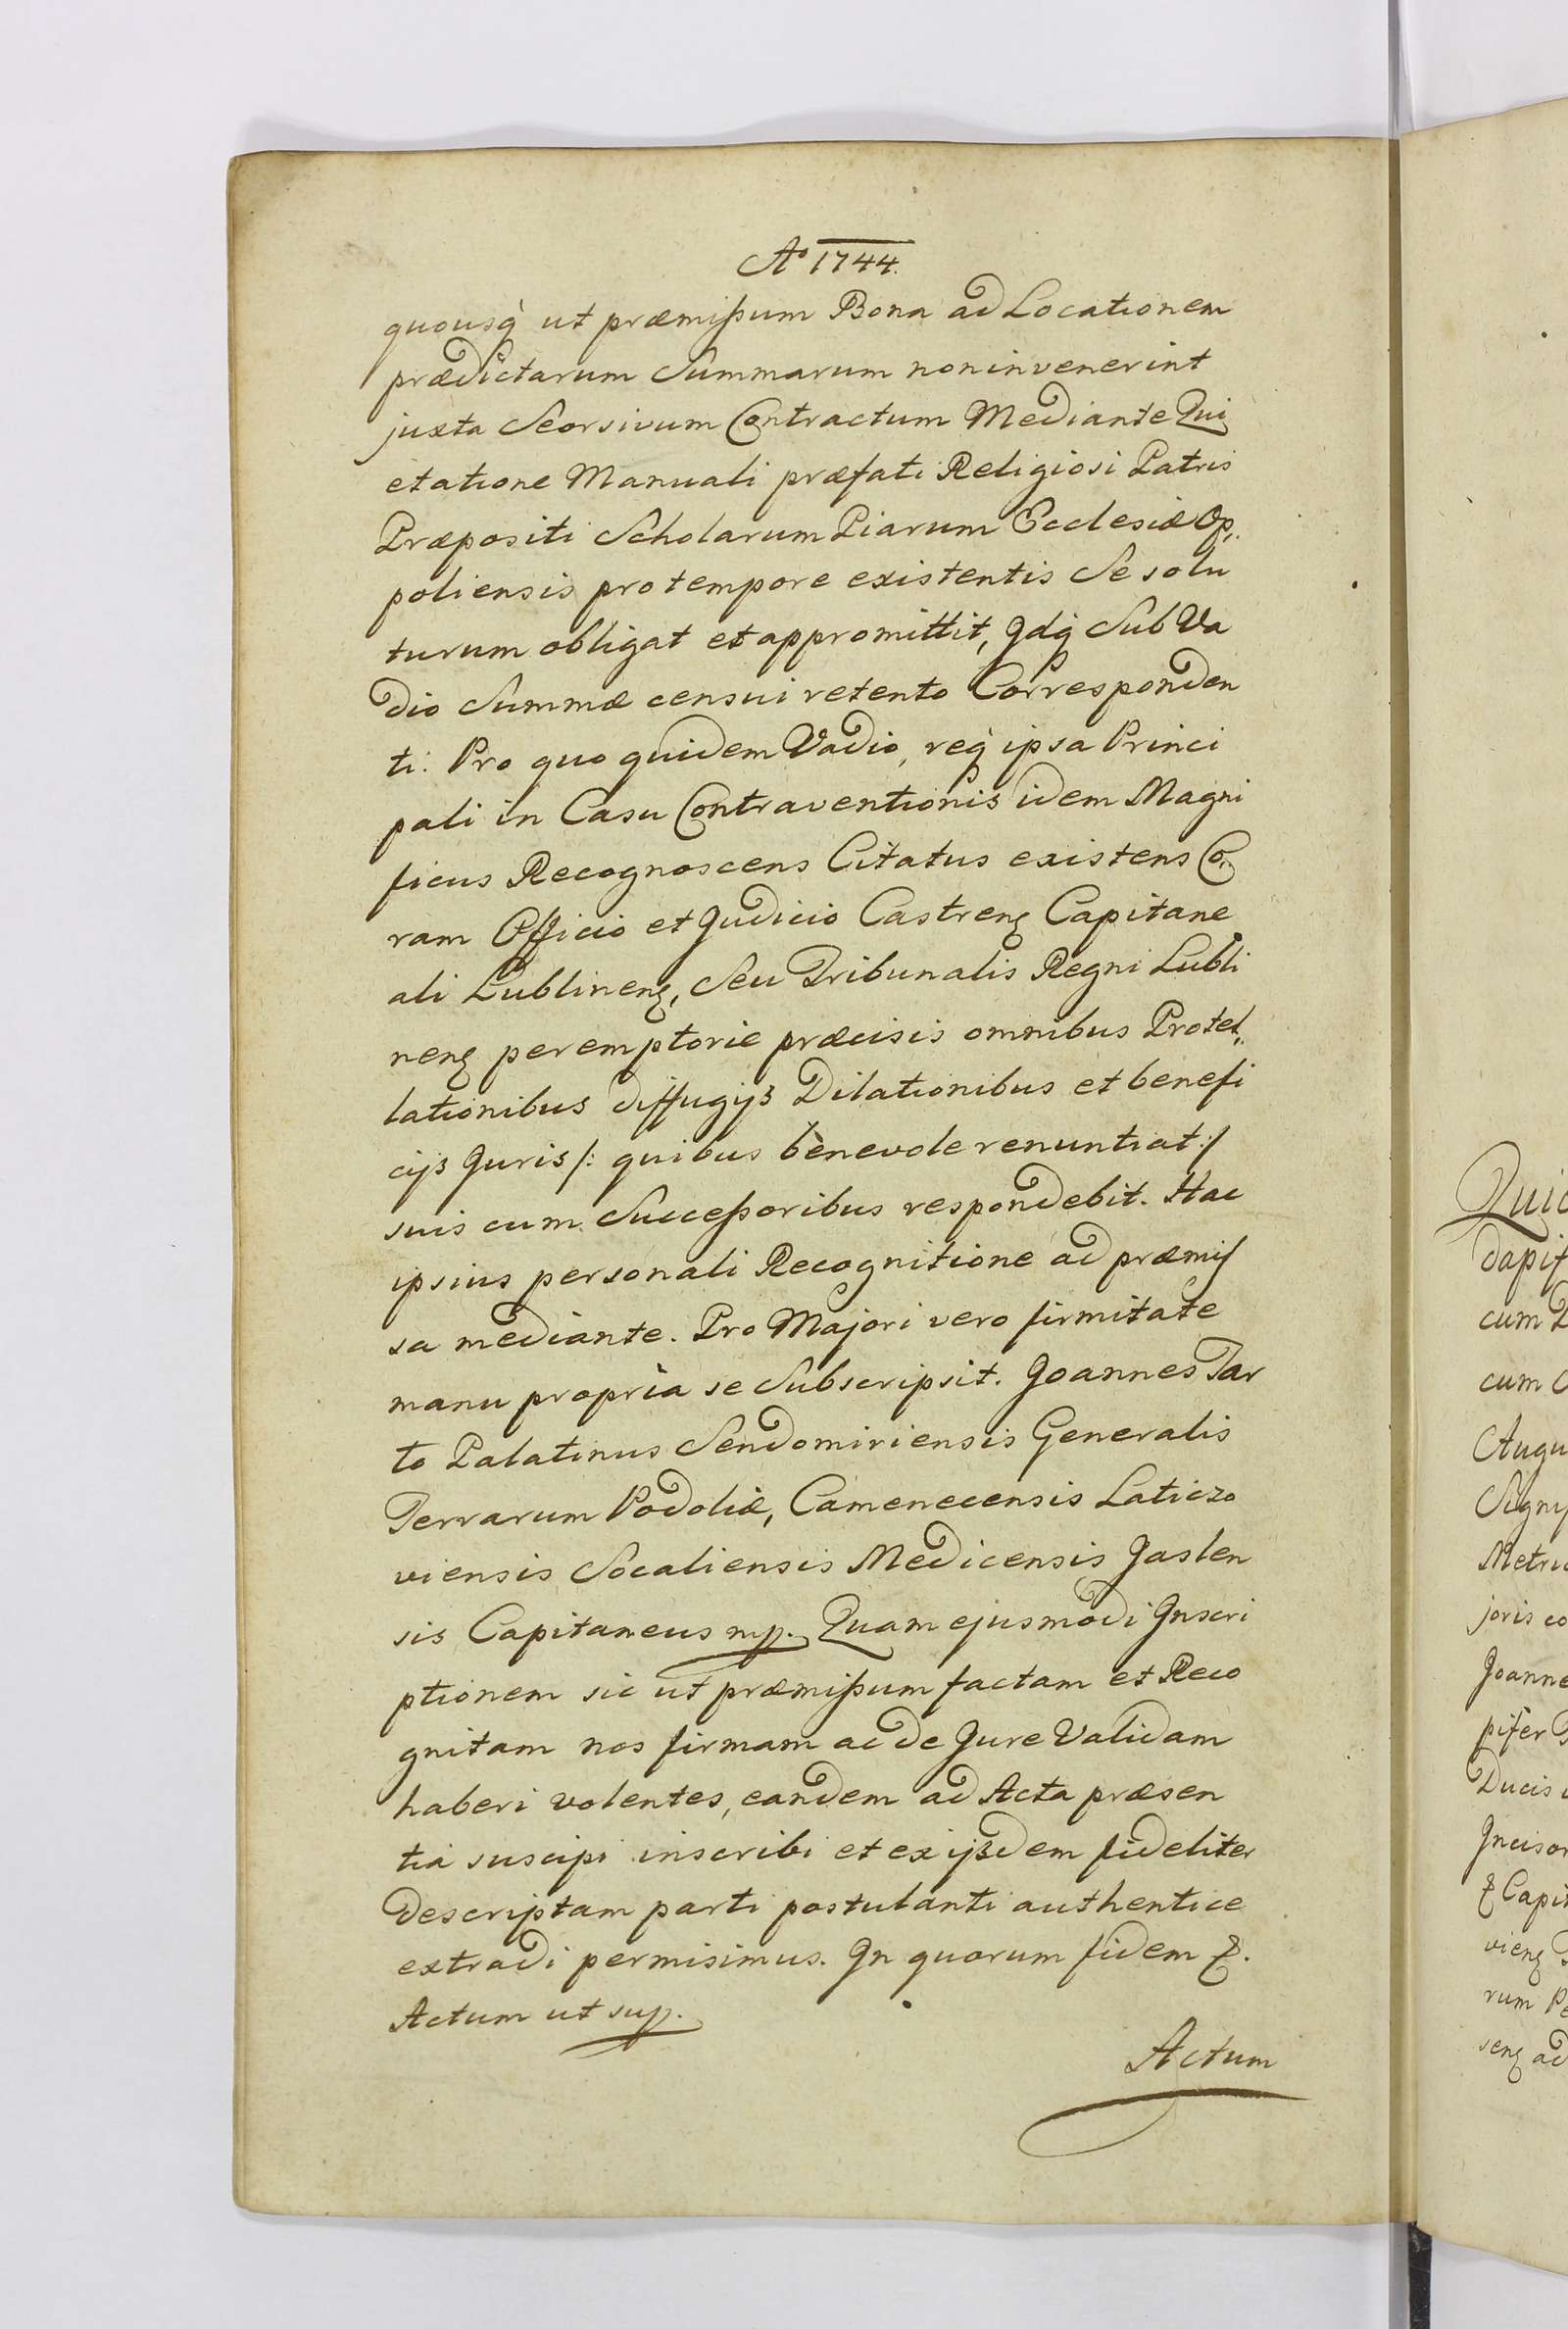 Aº 1744.
quousq̀ ut præmißum Bona ad Locationem
prædictarum Summarum non invenerint
juxta Seorsivum Contractum Mediante Qui
etatione Manuali præfati Religiosi Patris
Præpositi Scholarum Piarum Ecclesiæ Op„
poliensis pro tempore existentis Se solu
turum obligat et appromittit, Jdq̀ Sub Va
dio Summæ censui retento Corresponden
ti. Pro quo quidem Vadio, req̀ ipsa Princi
pali in Casu Contraventionis idem Magni
ficus Recognoscens Citatus existens Co„
ram Officio et Judicio Castrenȩ Capitane
ali Lublinenȩ, Seu Tribunalis Regni Lubli
nenȩ peremptorie præcisis omnibus Protel„
lationibus diffugijs Dilationibus et benefi
cijs Juris /: quibus bènevole renuntiat :/
suis cum Succeßoribus respondebit. Hac
ipsius personali Recognitione ad præmiſ
sa mediante. Pro Majori vero firmitate
manu propria se Subscripsit. Joannes Tar
to Palatinus Sendomiriensis Generalis
Terrarum Podoliæ, Camenecensis Laticzo
viensis Socaliensis Medicensis Jaslen
sis Capitaneus mp. Quam ejusmodi Jnscri
ptionem sic ut præmißum factam et Reco
gnitam nos firmam ac de Jure Validam
haberi volentes, eandem ad Acta præsen
tia suscipi inscribi et ex ijsdem fideliter
descriptam parti postulanti authentice
extradi permisimus. Jn quorum fidem &.
Actum ut sup.
Actum
Quic
dapif
cum
cum
Augu
Signi
Metri
joris co
Joanne
pifer
Ducis
Jncisor
& Capit
vienȩ
rum Po
senȩ ad